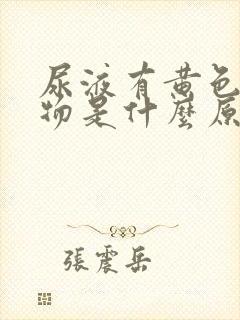 尿液有黄色
物是什麼原
張震岳